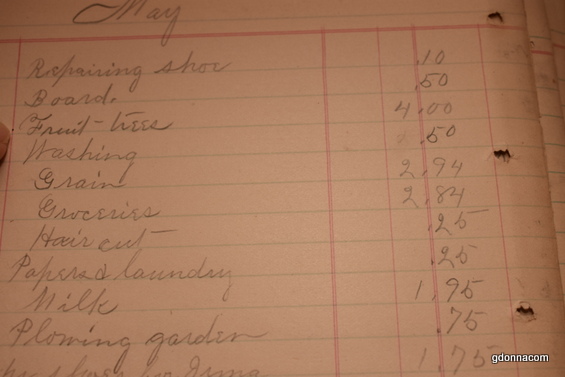 May
Repairing shoe .10
Board. .50
Fruit-trees 4.00
Washing .50
Grain 2.94
Groceries 2.84
Hair cut .25
Papers & laundry .25
Milk 1.95
Plowing garden .75
shoes for Irma 1.75
gdonnacom